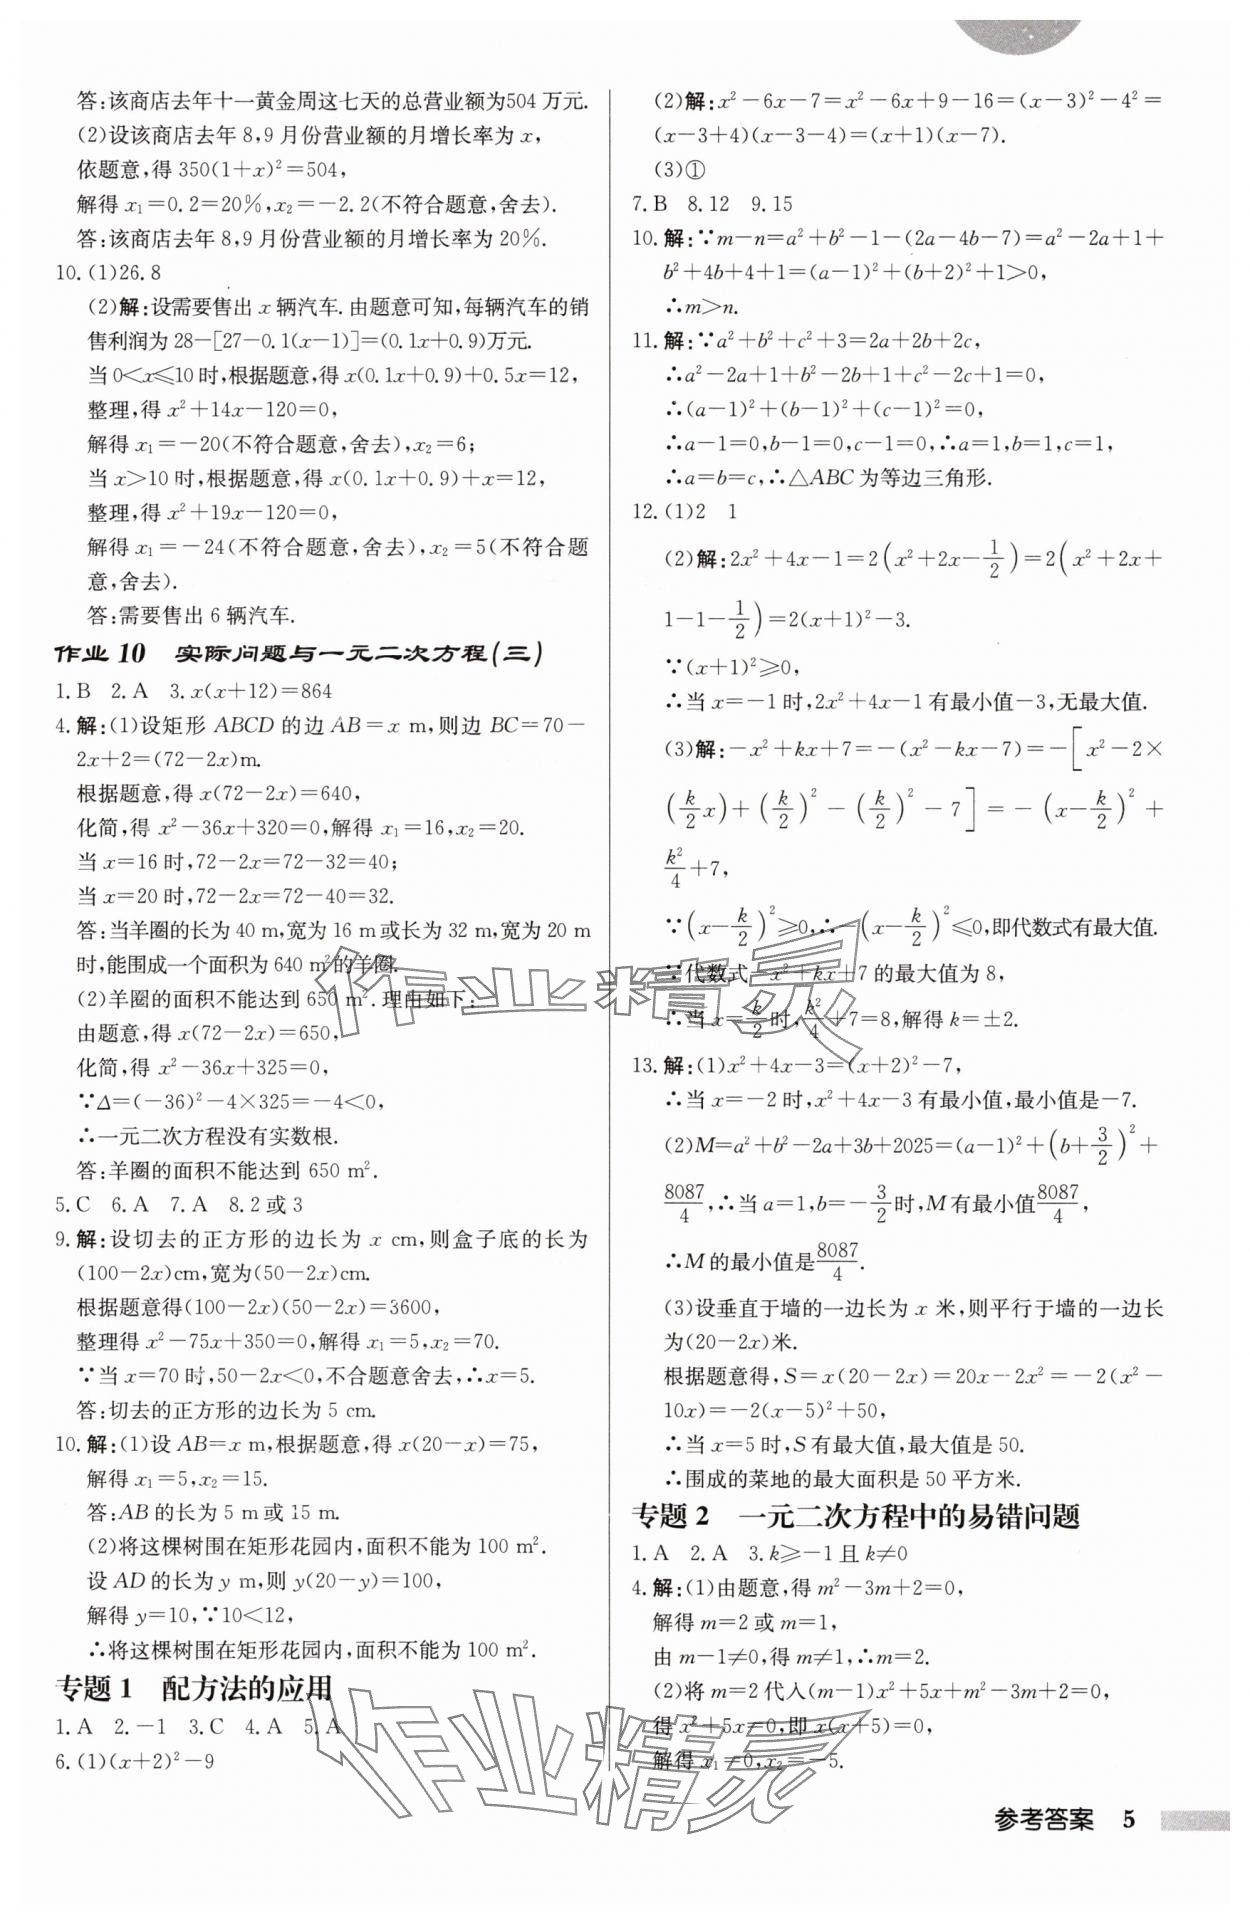 答:该商店去年十一黄金周这七天的总营业额为504万元.
(2)设该商店去年8,9月份营业额的月增长率为x,
依题意,得350(1+x)²=504,
解得x₁=0.2=20%,x₂=-2.2(不符合题意,舍去).
答:该商店去年8,9月份营业额的月增长率为20%.
10.(1)26.8
(2)解:设需要售出x辆汽车.由题意可知,每辆汽车的销
售利润为28-[27-0.1(x-1)]=(0.1x+0.9)万元.
当0<x≤10时,根据题意,得x(0.1x+0.9)+0.5x=12,
整理,得x²+14x-120=0,
解得x₁=-20(不符合题意,舍去),x₂=6;
当x>10时,根据题意,得x(0.1x+0.9)+x=12,
整理,得x²+19x-120=0,
解得x₁=-24(不符合题意,舍去),x₂=5(不符合题
意,舍去).
答:需要售出6辆汽车.
作业10 实际问题与一元二次方程(三)
1.B 2.A 3.x(x+12)=864
4.解:(1)设矩形ABCD的边AB=x m,则边BC=70-
2x+2=(72-2x)m.
根据题意,得x(72-2x)=640,
化简,得x²-36x+320=0,解得x₁=16,x₂=20.
当x=16时,72-2x=72-32=40;
当x=20时,72-2x=72-40=32.
答:当羊圈的长为40 m,宽为16 m或长为32 m,宽为20 m
时,能围成一个面积为640 m²的羊圈.
(2)羊圈的面积不能达到650 m².理由如下:
由题意,得x(72-2x)=650,
化简,得x²-36x+325=0,
∵Δ=(-36)²-4×325=-4<0,
∴一元二次方程没有实数根.
答:羊圈的面积不能达到650 m².
5.C 6.A 7.A 8.2或3
9.解:设切去的正方形的边长为x cm,则盒子底的长为
(100-2x)cm,宽为(50-2x)cm.
根据题意得(100-2x)(50-2x)=3600,
整理得x²-75x+350=0,解得x₁=5,x₂=70.
∵当x=70时,50-2x<0,不合题意舍去,∴x=5.
答:切去的正方形的边长为5 cm.
10.解:(1)设AB=x m,根据题意,得x(20-x)=75,
解得x₁=5,x₂=15.
答:AB的长为5 m或15 m.
(2)将这棵树围在矩形花园内,面积不能为100 m².
设AD的长为y m,则y(20-y)=100,
解得y=10,∵10<12,
∴将这棵树围在矩形花园内,面积不能为100 m².
专题1 配方法的应用
1.A 2.-1 3.C 4.A 5.A
6.(1)(x+2)²-9
(2)解:x²-6x-7=x²-6x+9-16=(x-3)²-4²=
(x-3+4)(x-3-4)=(x+1)(x-7).
(3)①
7.B 8.12 9.15
10.解:∵m-n=a²+b²-1-(2a-4b-7)=a²-2a+1+
b²+4b+4+1=(a-1)²+(b+2)²+1>0,
∴m>n.
11.解:∵a²+b²+c²+3=2a+2b+2c,
∴a²-2a+1+b²-2b+1+c²-2c+1=0,
∴(a-1)²+(b-1)²+(c-1)²=0,
∴a-1=0,b-1=0,c-1=0,∴a=1,b=1,c=1,
∴a=b=c,∴△ABC为等边三角形.
12.(1)2 1
(2)解:2x²+4x-1=2(x²+2x-1/2)=2(x²+2x+
1-1-1/2)=2(x+1)²-3.
∵(x+1)²≥0,
∴当x=-1时,2x²+4x-1有最小值-3,无最大值.
(3)解:-x²+kx+7=-(x²-kx-7)=-[x²-2×
(k/2 x)+(k/2)²-(k/2)²-7]=-(x-k/2)²+
k²/4+7,
∵(x-k/2)²≥0,∴-(x-k/2)²≤0,即代数式有最大值.
∵代数式-x²+kx+7的最大值为8,
∴当x=k/2时,k²/4+7=8,解得k=±2.
13.解:(1)x²+4x-3=(x+2)²-7,
∴当x=-2时,x²+4x-3有最小值,最小值是-7.
(2)M=a²+b²-2a+3b+2025=(a-1)²+(b+3/2)²+
8087/4,∴当a=1,b=-3/2时,M有最小值8087/4,
∴M的最小值是8087/4.
(3)设垂直于墙的一边长为x米,则平行于墙的一边长
为(20-2x)米.
根据题意得,S=x(20-2x)=20x-2x²=-2(x²-
10x)=-2(x-5)²+50,
∴当x=5时,S有最大值,最大值是50.
∴围成的菜地的最大面积是50平方米.
专题2 一元二次方程中的易错问题
1.A 2.A 3.k≥-1且k≠0
4.解:(1)由题意,得m²-3m+2=0,
解得m=2或m=1,
由m-1≠0,得m≠1,∴m=2.
(2)将m=2代入(m-1)x²+5x+m²-3m+2=0,
得x²+5x=0,即x(x+5)=0,
解得x₁=0,x₂=-5.
作业精灵
作业精灵
参考答案 5